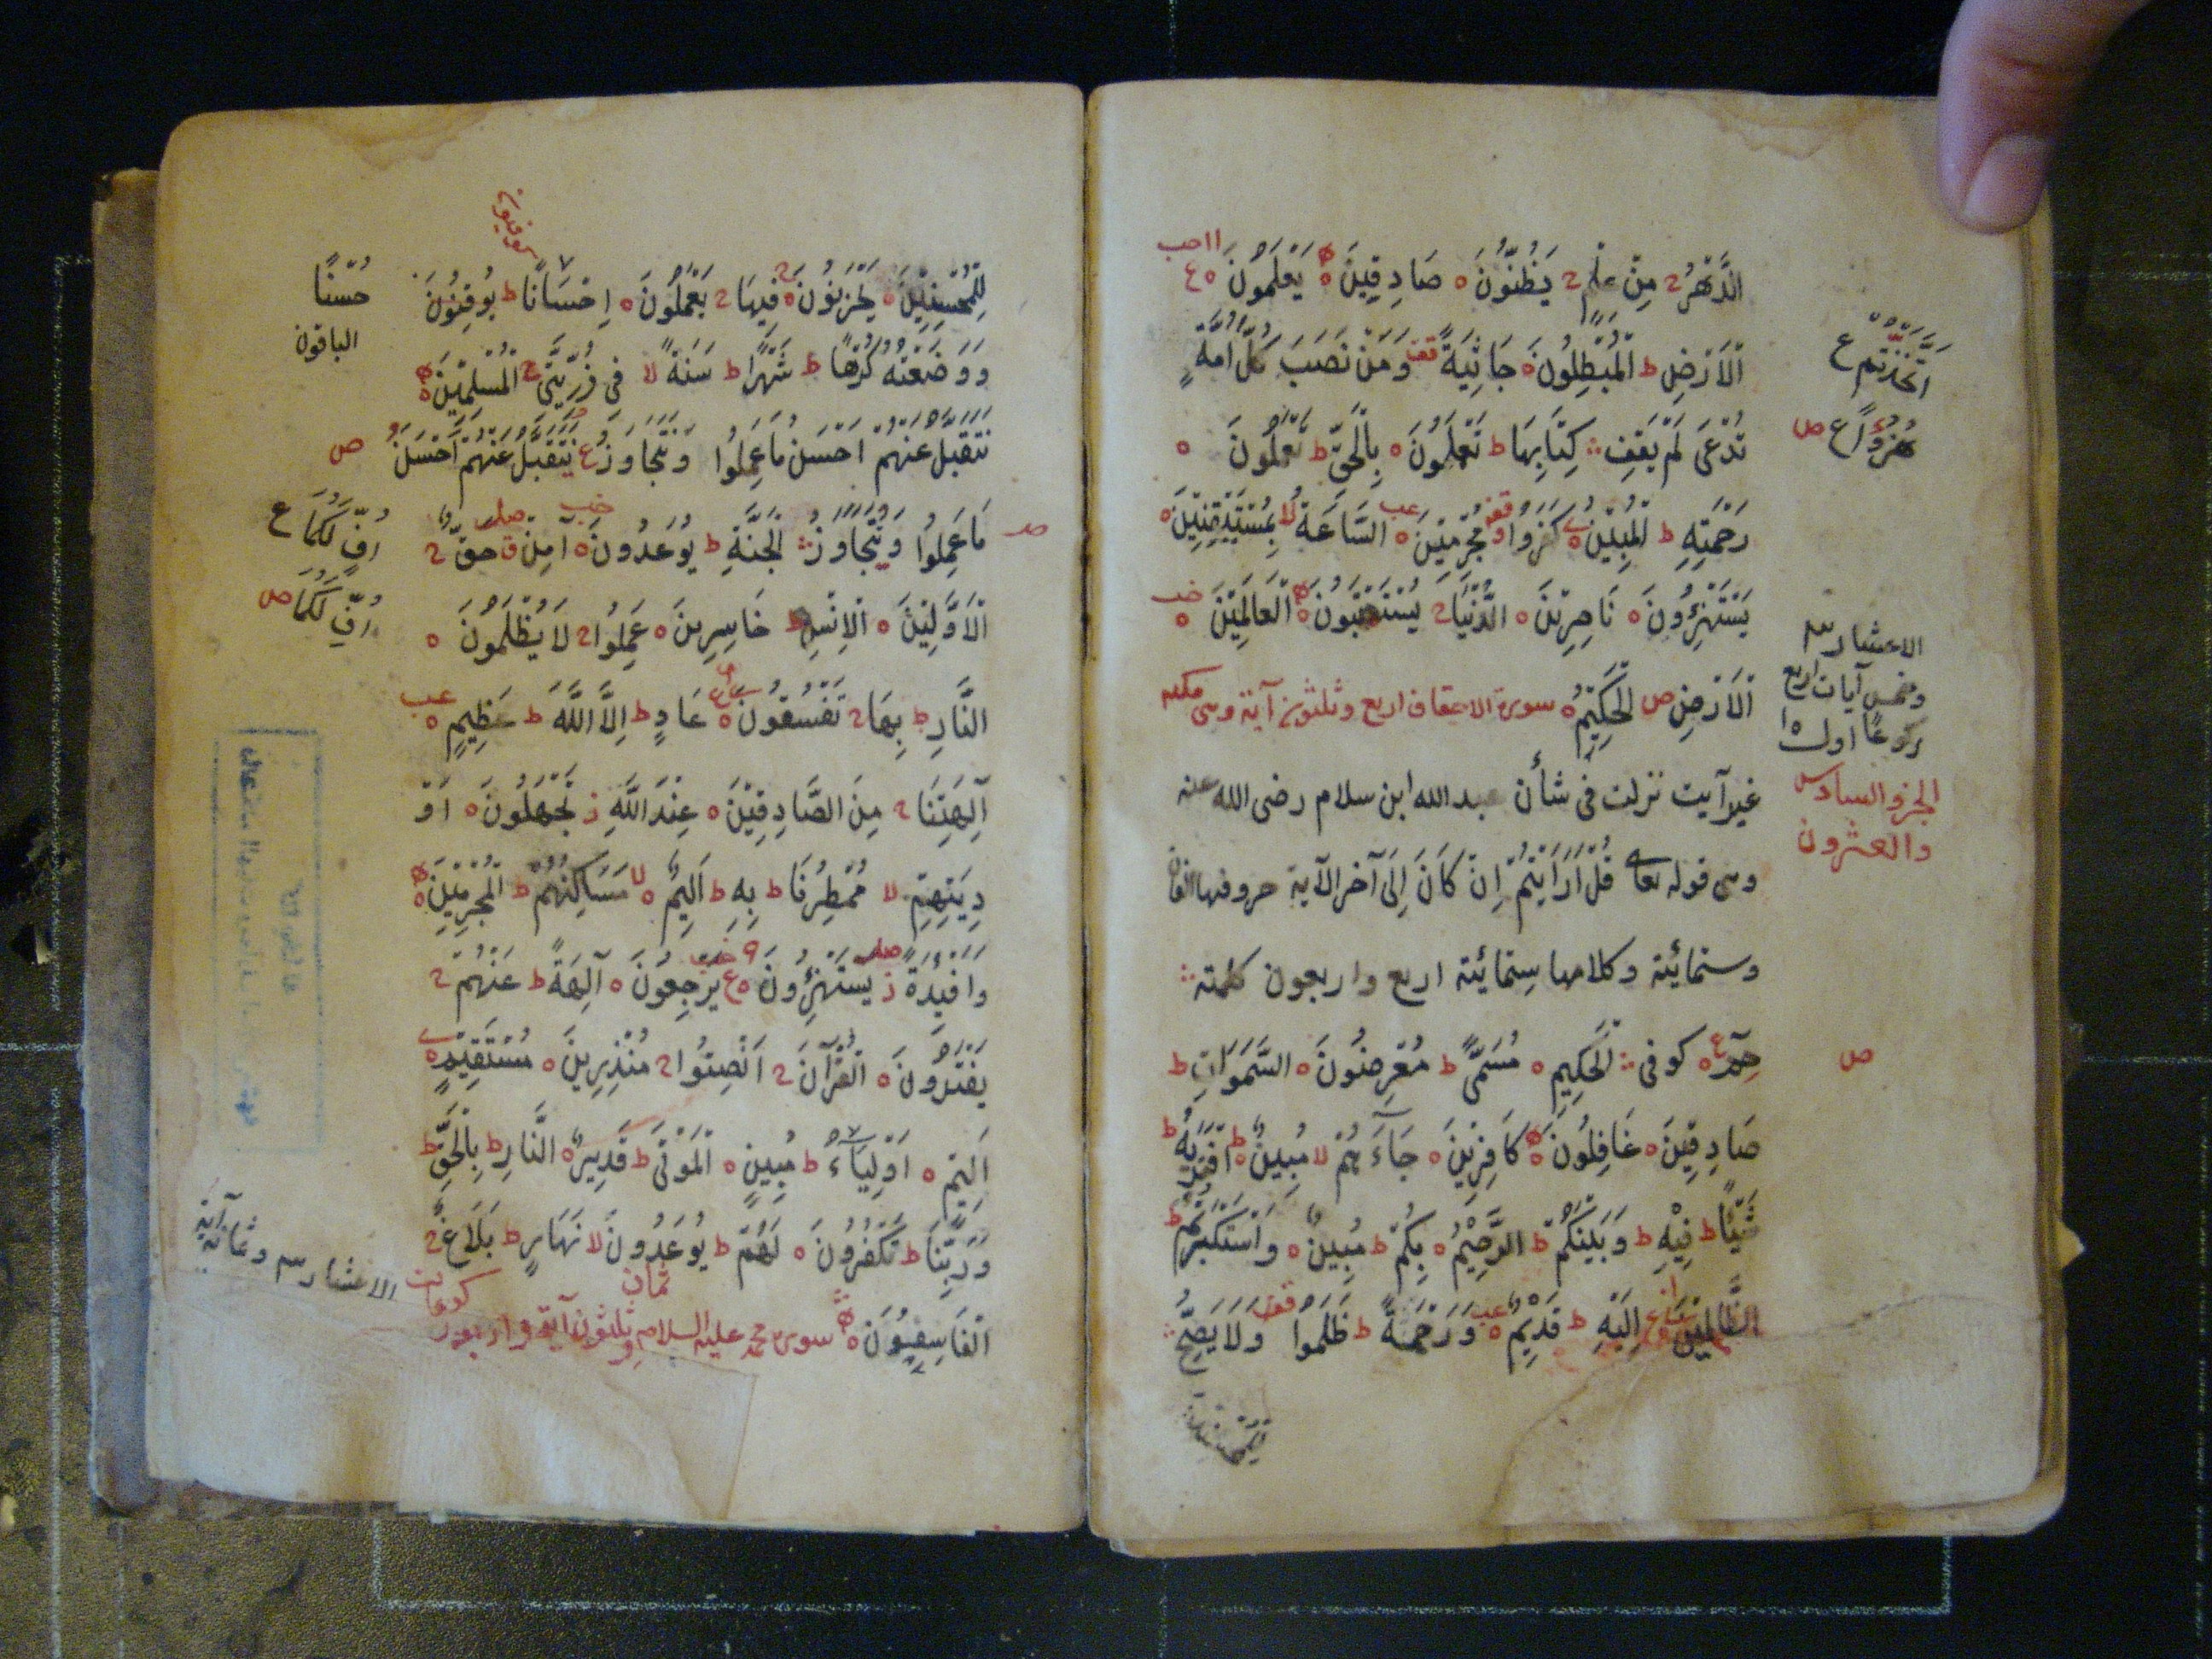 الدَّهْرُ مِنْ عِلْمٍ يَظُنُّونَ صَادِقِينَ يَعْلَمُونَ ع
الْاَرْضِ ط الْمُبْطِلُونَ جَاثِيَةً قف وَمَنْ نَصَبَ كُلَّ اُمَّةٍ
تُدْعَى لَمْ يَقِفْ كِتَابِهَا ط تَعْمَلُونَ بِالْحَقِّ ط تَعْمَلُونَ
رَحْمَتِهِ ط الْمُبِينُ كَفَرُوا قف مُجْرِمِينَ السَّاعَةُ لا بِمُسْتَيْقِنِينَ
يَسْتَهْزِؤُنَ نَاصِرِينَ الدُّنْيَا يُسْتَعْتَبُونَ الْعَالَمِينَ
الْاَرْضِ ص الْحَكِيمُ سورة الاحقاف اربع وثلثون آية وهى مكية
غير آيت نزلت فى شأن عبد الله ابن سلام رضى الله عنه
وهى قوله تعالى قُلْ اَرَاَيْتُمْ اِنْ كَانَ اِلَى آخر الآية حروفها الفان
وستمائية وكلامها ستمائية اربع واربعون كلمته
حم كوفى الْحَكِيمِ مُسَمًّى ط مُعْرِضُونَ السَّمَوَاتِ ط
صَادِقِينَ غَافِلُونَ كَافِرِينَ جَاءَهُمْ لا مُبِينٌ ط افْتَرَيهُ ط
شَيْئًا ط فِيْهِ ط وَبَيْنَكُمْ ط الرَّحِيْمُ بِكُمْ ط مُبِينٌ وَاسْتَكْبَرْتُمْ ط
الظَّالِمِينَ اِلَيْهِ ط قَدِيْمٌ وَرَحْمَةً ط ظَلَمُوا قف وَلَا يَصِحُّ
اتَّخَذْتُمْ ع
هُزُوًا ع ص
الاعشار
وخمس آيات اربع
ركوعا اول
الجزو السادس
والعشرون
ص
لِلْمُحْسِنِيْنَ يَحْزَنُونَ فِيهَا يَعْمَلُونَ اِحْسَانًا ط يُوقِنُونَ
وَوَضَعَتْهُ كُرْهًا ط شَهْرًا ط سَنَةً لا فى ذُرِّيَّتِى الْمُسْلِمِينَ
نَتَقَبَّلُ عَنْهُمْ اَحْسَنَ مَا عَمِلُوا وَنَتَجَاوَزُ ع يُتَقَبَّلُ عَنْهُمْ اَحْسَنُ
مَا عَمِلُوا وَيُتَجَاوَزُ الْجَنَّةِ ط يُوعَدُونَ آمِنْ حَقٌّ
الْاَوَّلِيْنَ الْاِنْسِ ط خَاسِرِينَ عَمِلُوا لَا يُظْلَمُونَ
النَّارِ ط بِهَا تَفْسُقُونَ عَادٍ ط اِلَّا اللَّهَ ط عَظِيمٍ
آلِهَتِنَا مِنَ الصَّادِقِيْنَ عِنْدَ اللَّهِ ز تَجْهَلُونَ اَوْ
دِيَتِهِمْ لا مُمْطِرُنَا ط بِهِ ط اَلِيمٌ لا مَسَاكِنُهُمْ ط الْمُجْرِمِيْنَ
وَاَفْئِدَةً ز يَسْتَهْزِؤُنَ ع يَرْجِعُونَ آلِهَةً ط عَنْهُمْ
يَفْتَرُونَ الْقُرْآنَ اَنْصِتُوا مُنْذِرِينَ مُسْتَقِيْمٍ
اَلِيْمٍ اَوْلِيَاءُ ط مُبِينٍ الْمَوْتَى ط قَدِيرٌ النَّارِ ط بِالْحَقِّ ط
وَرَبِّنَا ط تَكْفُرُونَ لَهُمْ ط يُوعَدُونَ لا نَهَارٍ ط بَلَاغٌ
الْفَاسِقُونَ سورة محمد عليه السلام ثمان وثلثون آية واربع ركوعات
حُسْنًا
الباقون
ص
اُفِّ لَكُمَا ع
اُفٍّ لَكُمَا ص
الاعشار